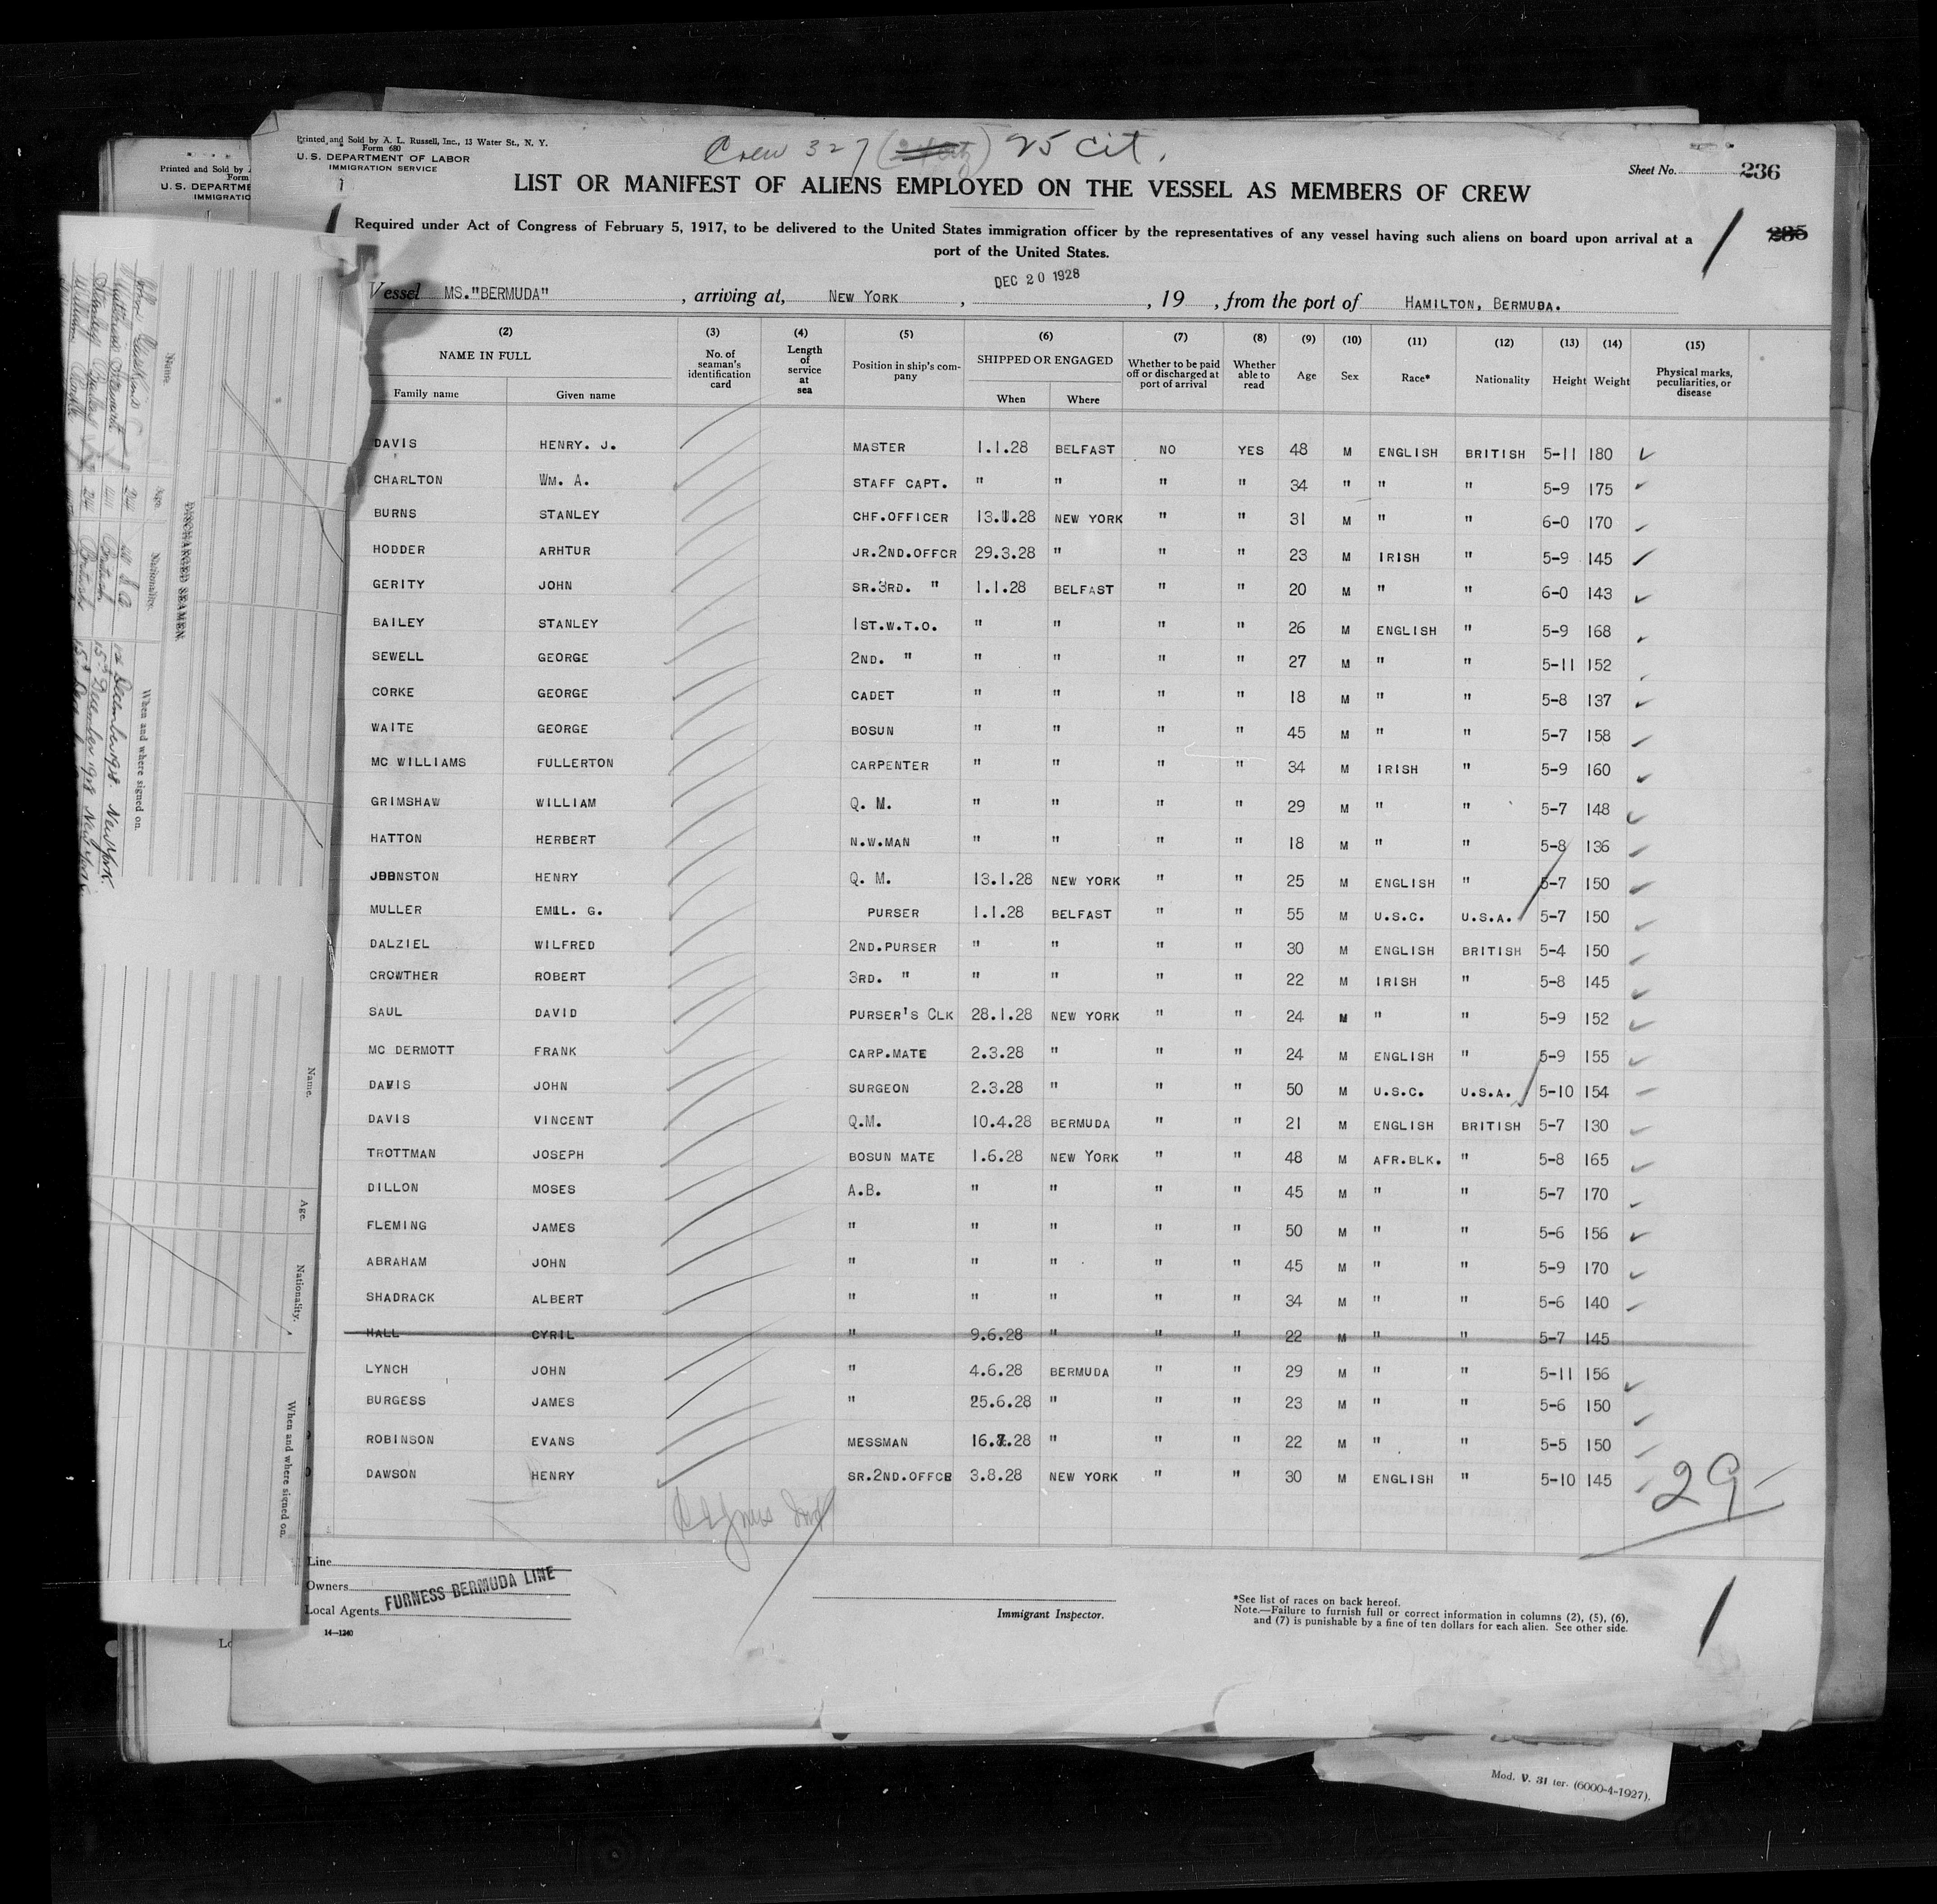 Printed and Sold by A. L. Russell, Inc., 13 Water St., N. Y.
Form 680
U.S. DEPARTMENT OF LABOR
IMMIGRATION SERVICE
Crew 327 25 cit.
Sheet No. 236
LIST OR MANIFEST OF ALIENS EMPLOYED ON THE VESSEL AS MEMBERS OF CREW
Required under Act of Congress of February 5, 1917, to be delivered to the United States immigration officer by the representatives of any vessel having such aliens on board upon arrival at a
port of the United States.
285
Vessel MS."BERMUDA", arriving at, NEW YORK, DEC 20 1928, 19 , from the port of HAMILTON, BERMUDA.
(2) (3) (4) (5) (6) (7) (8) (9) (10) (11) (12) (13) (14) (15)
NAME IN FULL No. of seaman's identification card Length of service at sea Position in ship's company SHIPPED OR ENGAGED Whether to be paid off or discharged at port of arrival Whether able to read Age Sex Race* Nationality Height Weight Physical marks, peculiarities, or disease
Family name Given name When Where
DAVIS HENRY. J. MASTER 1.1.28 BELFAST NO YES 48 M ENGLISH BRITISH 5-11 180
CHARLTON WM. A. STAFF CAPT. " " " " 34 " " " 5-9 175
BURNS STANLEY CHF.OFFICER 13.1.28 NEW YORK " " 31 M " " 6-0 170
HODDER ARHTUR JR.2ND.OFFCR 29.3.28 " " " 23 M IRISH " 5-9 145
GERITY JOHN SR.3RD. " 1.1.28 BELFAST " " 20 M " " 6-0 143
BAILEY STANLEY 1ST.W.T.O. " " " " 26 M ENGLISH " 5-9 168
SEWELL GEORGE 2ND. " " " " " 27 M " " 5-11 152
CORKE GEORGE CADET " " " " 18 M " " 5-8 137
WAITE GEORGE BOSUN " " " " 45 M " " 5-7 158
MC WILLIAMS FULLERTON CARPENTER " " " " 34 M IRISH " 5-9 160
GRIMSHAW WILLIAM Q. M. " " " " 29 M " " 5-7 148
HATTON HERBERT N.W.MAN " " " " 18 M " " 5-8 136
JOHNSTON HENRY Q. M. 13.1.28 NEW YORK " " 25 M ENGLISH " 5-7 150
MULLER EMIL. G. PURSER 1.1.28 BELFAST " " 55 M U.S.C. U.S.A. 5-7 150
DALZIEL WILFRED 2ND.PURSER " " " " 30 M ENGLISH BRITISH 5-4 150
CROWTHER ROBERT 3RD. " " " " " 22 M IRISH " 5-8 145
SAUL DAVID PURSER'S CLK 28.1.28 NEW YORK " " 24 M " " 5-9 152
MC DERMOTT FRANK CARP.MATE 2.3.28 " " " 24 M ENGLISH " 5-9 155
DAVIS JOHN SURGEON 2.3.28 " " " 50 M U.S.C. U.S.A. 5-10 154
DAVIS VINCENT Q.M. 10.4.28 BERMUDA " " 21 M ENGLISH BRITISH 5-7 130
TROTTMAN JOSEPH BOSUN MATE 1.6.28 NEW YORK " " 48 M AFR.BLK. " 5-8 165
DILLON MOSES A.B. " " " " 45 M " " 5-7 170
FLEMING JAMES " " " " " 50 M " " 5-6 156
ABRAHAM JOHN " " " " " 45 M " " 5-9 170
SHADRACK ALBERT " " " " " 34 M " " 5-6 140
HALL CYRIL " 9.6.28 " " " 22 M " " 5-7 145
LYNCH JOHN " 4.6.28 BERMUDA " " 29 M " " 5-11 156
BURGESS JAMES " 25.6.28 " " " 23 M " " 5-6 150
ROBINSON EVANS MESSMAN 16.7.28 " " " 22 M " " 5-5 150
DAWSON HENRY SR.2ND.OFFCR 3.8.28 NEW YORK " " 30 M ENGLISH " 5-10 145
29
Line
Owners
Local Agents FURNESS BERMUDA LINE
14—1240
Immigrant Inspector.
*See list of races on back hereof.
Note.—Failure to furnish full or correct information in columns (2), (5), (6),
and (7) is punishable by a fine of ten dollars for each alien. See other side.
Mod. V. 31 ter. (6000-4-1927).
Printed and Sold by
Form
U.S. DEPARTME
IMMIGRATIO
DISCHARGED SEAMEN
Name. Age. Nationality. When and where signed on.
24 U S A 12 December 1928. New York.
41 British 15th December 1928 New York
Stanley 24 British
William
Name. Age. Nationality. When and where signed on.
Lo